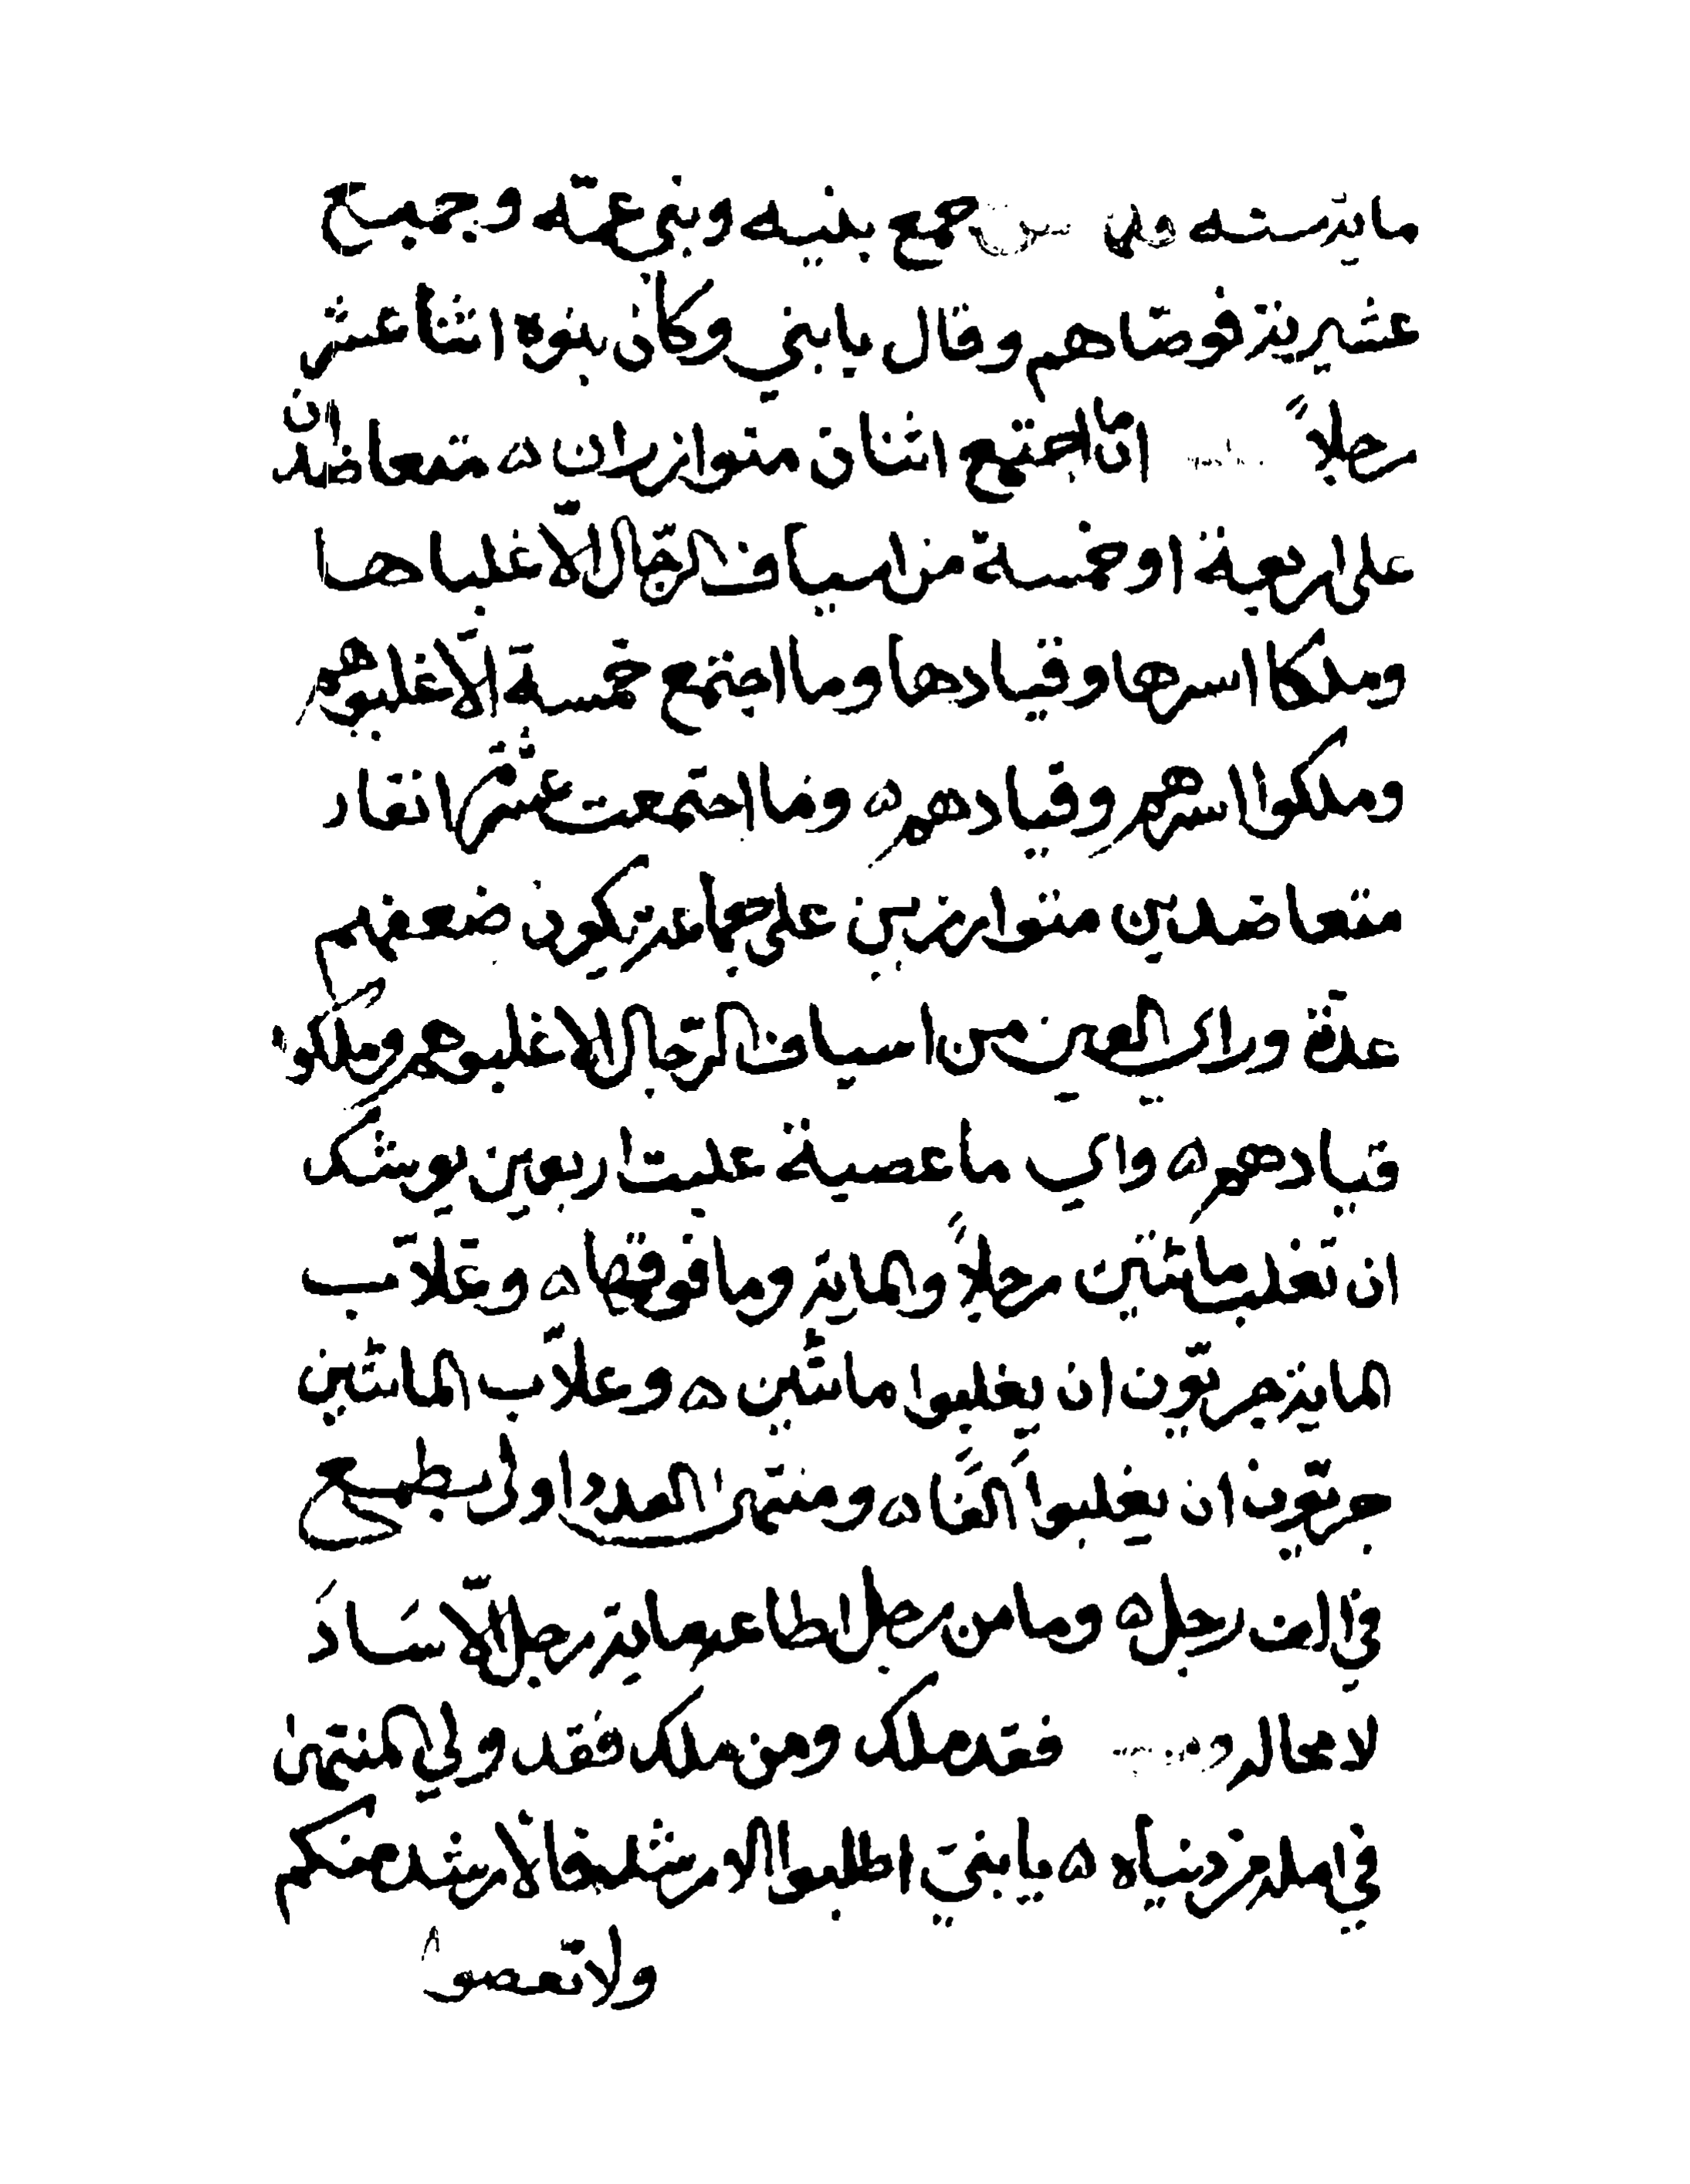 ماية سنة جمع بنيه وبني عمّه وجميع
عشيرته فوصّاهم وقال يا بني وكان بنوه اثنا عشر
رجلاً انه ما اجتمع اثنان متوازران ه متعاضدان
على اربعة او خمسة من اسياف الرجال الاّ غلباها
وملكا اسرها وقيادها وما اجتمع خمسة الاّ غلبوهم
وملكوا اسرهم وقيادهم ه وما اجتمعت عشرة انفار
متعاضدين متوازرين على جماعة تكون ضعفهم
عدّة وراي العين من اسياف الرّجال الا غلبوهم وملكوا
قيادهم ه واي ما عصبة غلبت اربعين يوشك
ان تغلب مائتين رجلاً والماية وما فوقها ه وغلاّب
الماية جريّون ان يغلبوا مائتين ه وغلاّب المائتين
جريّون ان يغلبوا الفًا ه ومنتهى العدد اولى يطمع
في الف رجل ه وما من رجل اطاعه ماية رجل الاّ سادَ
لا محاله فقد ملك ومن ملك فقد ولي المنتهى
في امله من دنياه ه يا بنيّ اطلبوا الارشد فالارشد منكم
ولا تعصوا